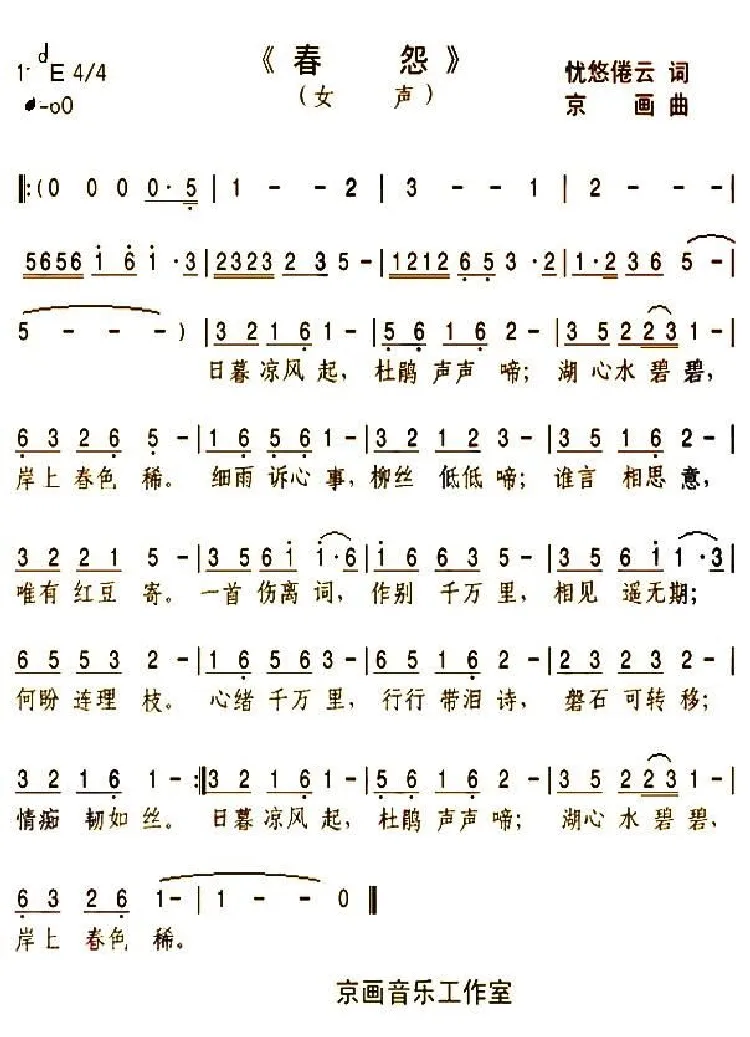 《春 怨》
1=♭E 4/4 忧悠倦云 词
(女 声) 京 画 曲
♩-o0
‖:(0 0 0 0· 5|1 - - 2|3 - - 1|2 - - -|
5656 1 6 1 ·3|2323 2 3 5 -|1212 6 5 3 ·2|1·2 3 6 5 -|
5 - - - )|3 2 1 6 1 -|5 6 1 6 2 -|3 5 2 23 1 -|
日暮凉风起，杜鹃声声啼；湖心水碧碧，
6 3 2 6 5 -|1 6 5 6 1 -|3 2 1 2 3 -|3 5 1 6 2 -|
岸上春色稀。细雨诉心事，柳丝低低啼；谁言相思意，
3 2 2 1 5 -|3 5 6 1 1·6|1 6 6 3 5 -|3 5 6 1 1·3|
唯有红豆寄。一首伤离词，作别千万里，相见遥无期；
6 5 5 3 2 -|1 6 5 6 3 -|6 5 1 6 2 -|2 3 2 3 2 -|
何盼连理枝。心绪千万里，行行带泪诗，磐石可转移；
3 2 1 6 1 -:‖3 2 1 6 1 -|5 6 1 6 2 -|3 5 2 23 1 -|
情痴韧如丝。日暮凉风起，杜鹃声声啼；湖心水碧碧，
6 3 2 6 1 -|1 - - 0‖
岸上春色稀。
京画音乐工作室